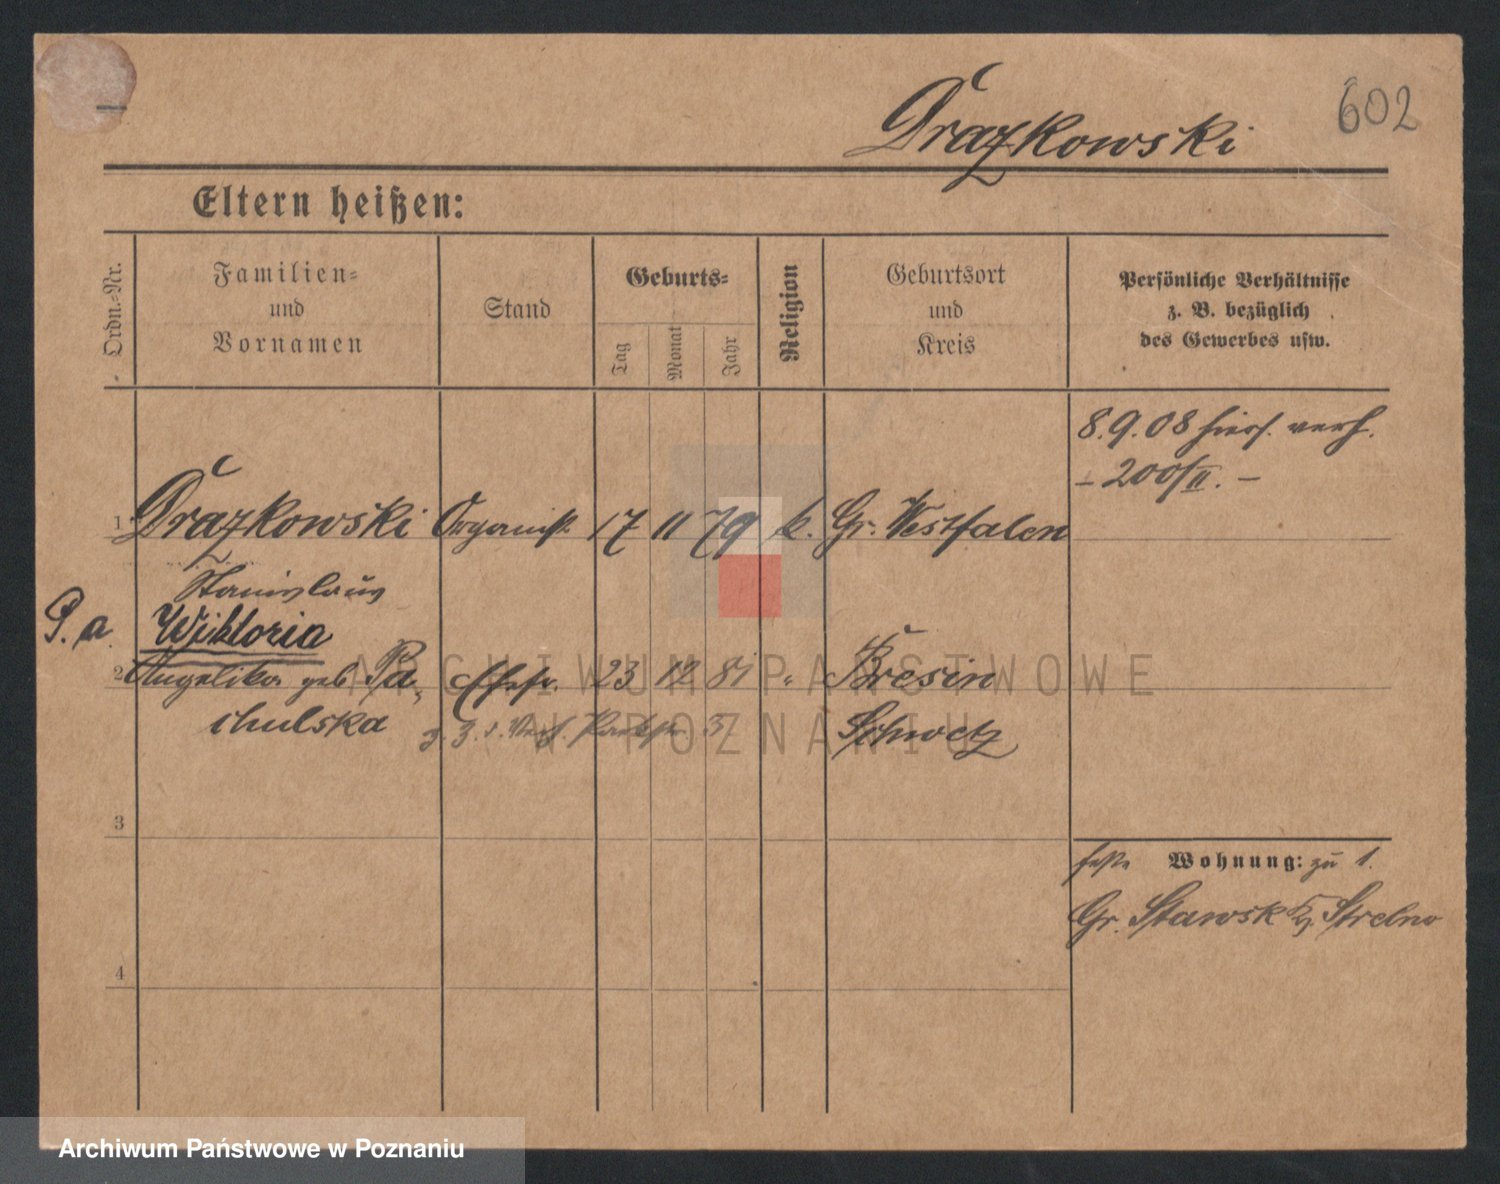 602
Drazkowski
Eltern heißen:
Ordn.-Nr.
Familien-
und
Vornamen
Stand
Geburts-
Tag
Monat
Jahr
Religion
Geburtsort
und
Kreis
Persönliche Verhältnisse
z. B. bezüglich
des Gewerbes usw.
8.9.08 hiers. verh.
- 200/II. -
1 Drazkowski Organist 17 11 79 k. Gr. Westfalen
Stanislaus
P. a. Wiktoria
2 Angelika geb. Pa- Ehefr. 23 12 81 " Bresin
chulska
Schwetz
3
Wohnung: zu 1.
Gr. Stawsk Kr. Strelno
4
ARCHIWUM PAŃSTWOWE
W POZNANIU
Archiwum Państwowe w Poznaniu